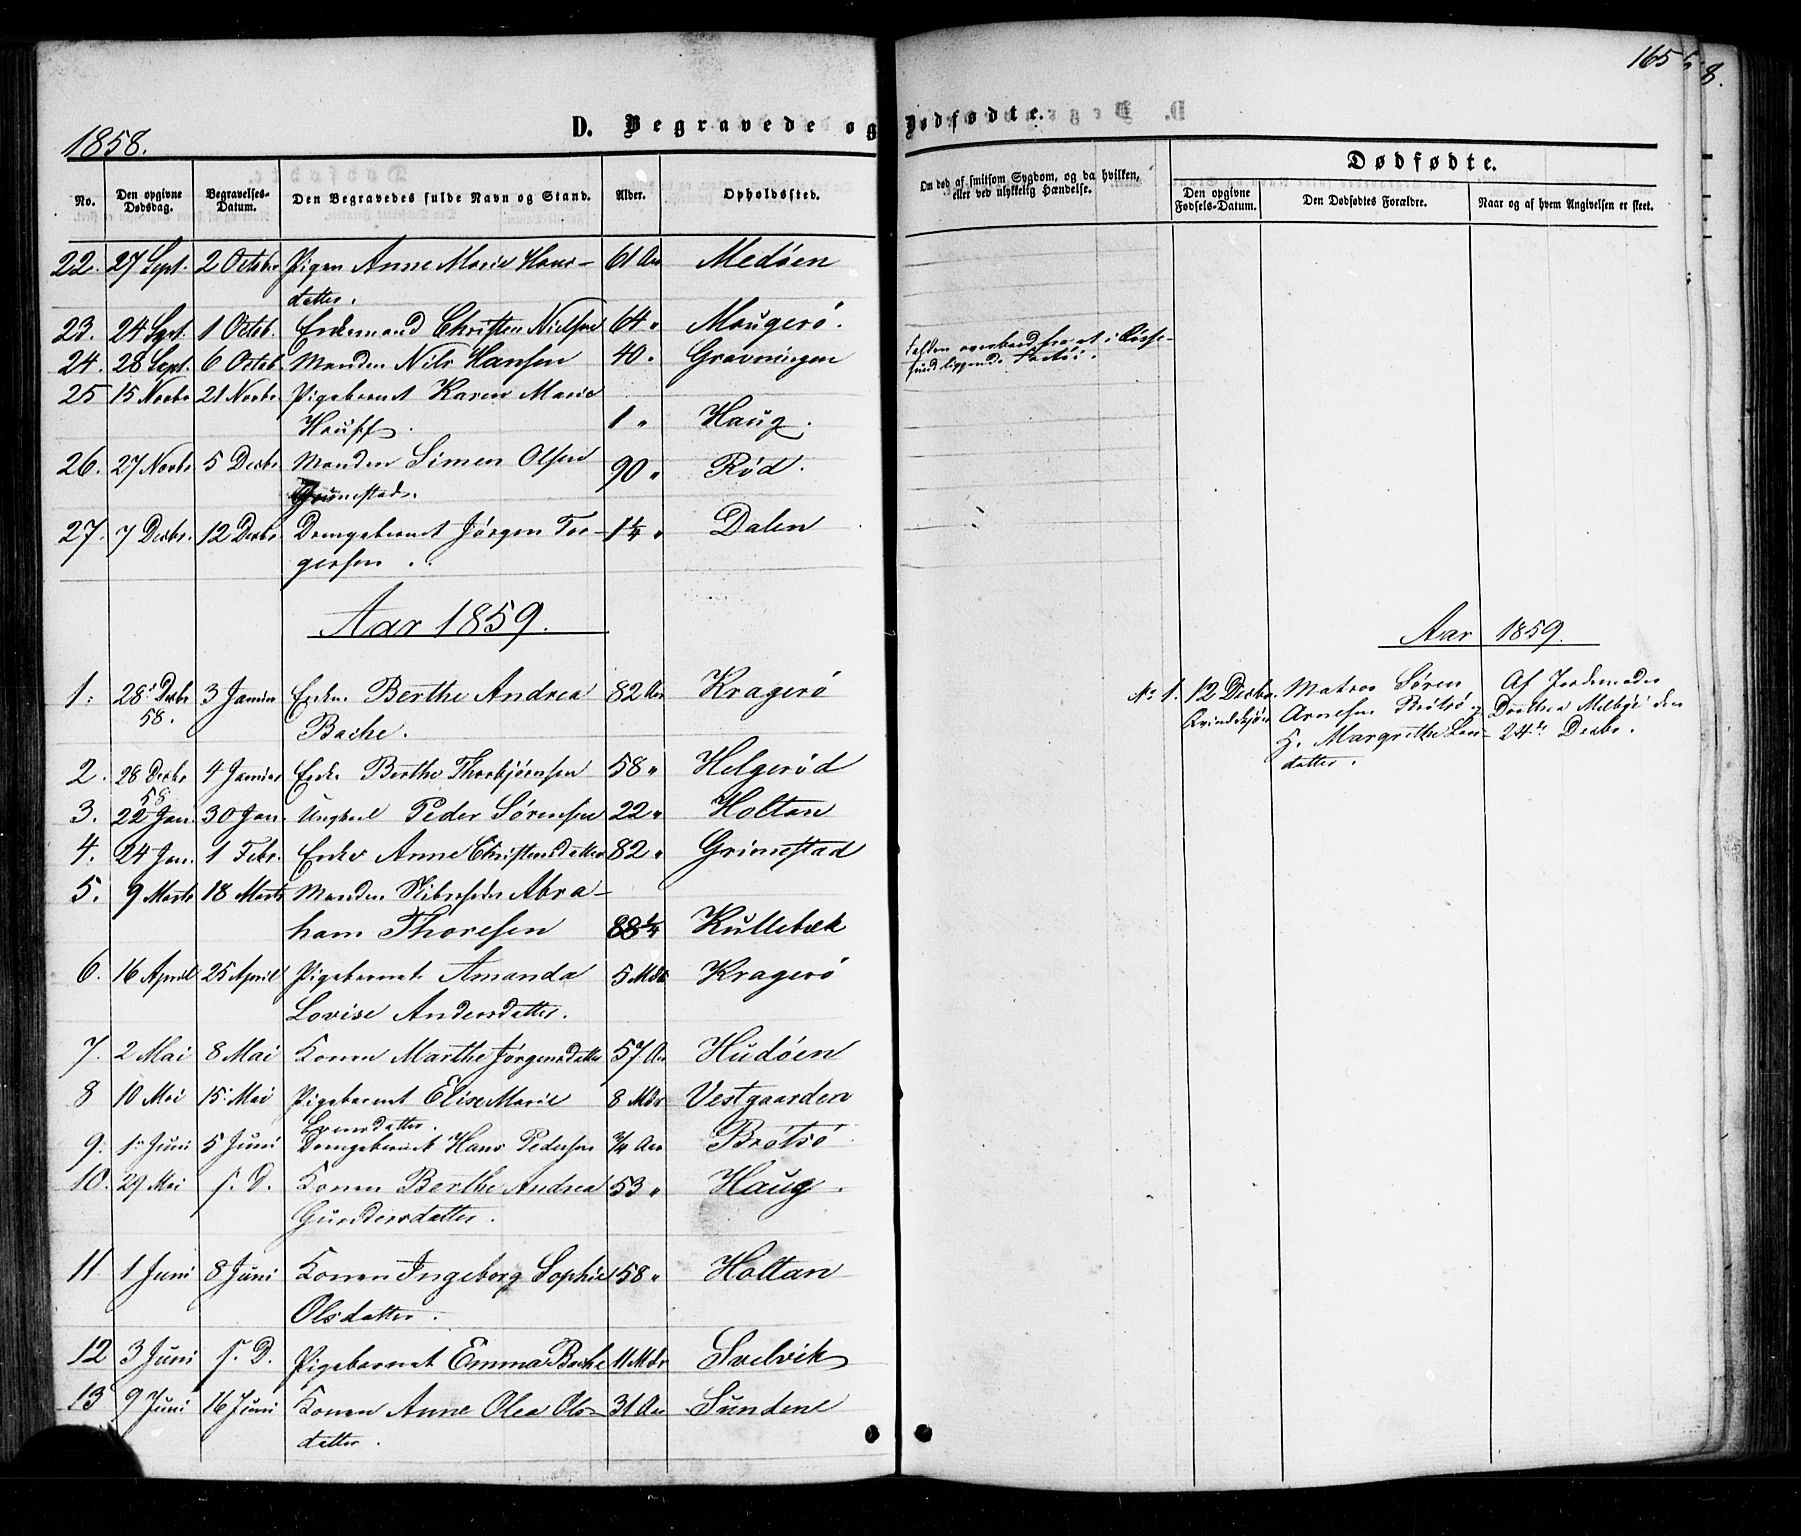 165
8.
1858.
D. Begravede og Dødfødte.
No.
Den opgivne Dødsdag.
Begravelses-Datum.
Den Begravedes fulde Navn og Stand.
Alder.
Opholdssted.
Om død af smitsom Sygdom, og da hvilken, eller ved ulykkelig Hændelse.
Dødfødte.
Den opgivne Fødsels-Datum.
Den Dødfødtes Forældre.
Naar og af hvem Angivelsen er skeet.
22. 27 Sept. 2 Octobr Pigen Anne Marie Hans- 61 Aar Medøen
datter.
23. 24 Sept. 1 Octob. Enkemand Christen Nielsen 64 " Maugerø.
24. 28 Sept. 6 Octob. Manden Nils Hansen 40 " Gravningen Falden overbord fra et i
sund liggende Fartøi.
25 15 Novbr 21 Novbr. Pigebarnet Karen Marie
Hauff. 1 " Haug.
26. 27 Novbr 5 Decbr Manden Simen Olsen 90 " Rød.
Grimestad.
27. 7 Decbr. 12 Decbr Drengebarnet Jørgen Tor- 1¼ " Dalen
gersen.
Aar 1859.
1. 28 Decbr 3 Januar Enken Berthe Andrea 82 Aar Kragerø
58. Bache.
2. 28 Decbr 4 Januar Enke Berthe Thorbjørnsen 58 " Helgerød
58
3. 22 Jan. 30 Jan. Ungkarl Peder Sørensen 22 " Holtan
4. 24 Jan. 1 Febr. Enke Anne Christensdatter 82 " Grimestad
5. 9 Marts 18 Marts Manden Skibsreder Abra-
ham Thoresen 88¼ Kullebæk
6. 16 April 25 April Pigebarnet Amanda 5 Mdr Kragerø
Lovise Andersdatter.
7. 2 Mai 8 Mai Konen Marthe Jørgensdatter 57 Aar Hudøen
8 10 Mai 15 Mai Pigebarnet Elise Marie 8 Mdr Vestgaarden
9. 1 Juni 5 Juni Drengebarnet Hans Pedersen ¾ Aar Brøtsø
10. 29 Mai s. D. Konen Berthe Andrea 53 " Haug.
Gundersdatter.
11 1 Juni 8 Juni Konen Ingeborg Sophie 58 " Holtan
Olsdatter.
12 3 Juni s. D. Pigebarnet Emma Bache 11 Mdr Svelvik
13 9 Juni 16 Juni Konen Anne Olea Ols- 31 Aar Sundene
datter.
Aar 1859.
No 1. 12 Decbr. Matros Søren Af Jordemoder
Qvindekjøn Arnesen Brøtsø og Dorthea Melbye den
H. Margrethe Lars- 24de Decbr.
datter.